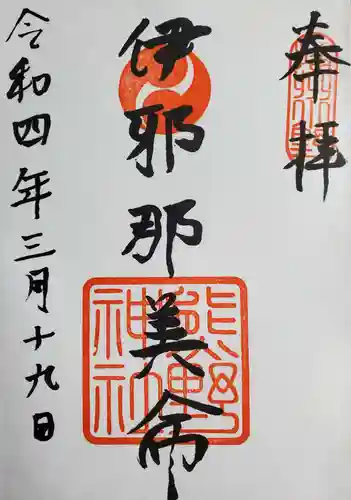 奉拝
伊邪那美命
熊野
神社
令和四年三月十九日